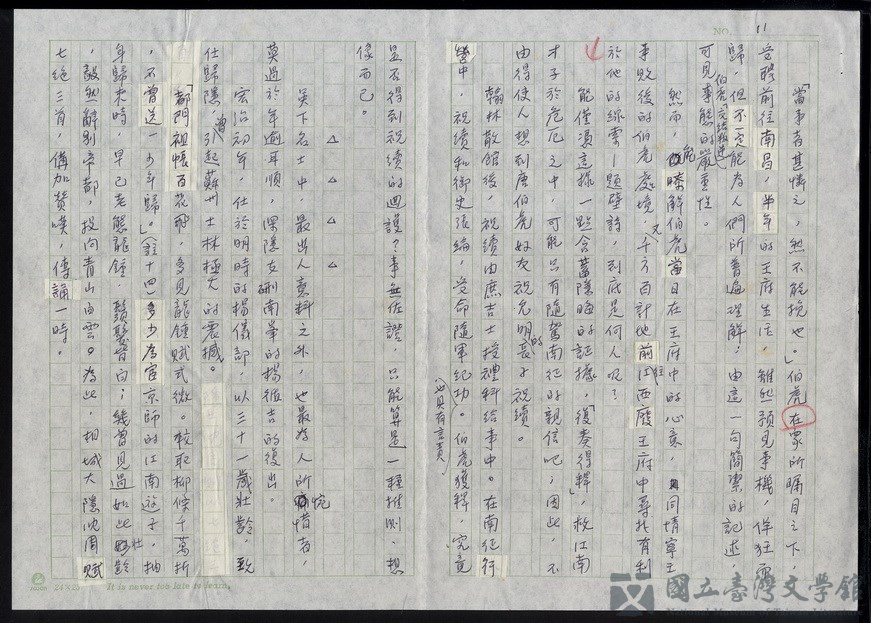 11
「當事者甚憐之，然不能挽也。」伯虎在眾所矚目之下，
受聘前往南昌，半年的王府生活，雖然預見事機，佯狂
歸，但不一定能為人們所普遍理解；由這一句簡潔的記述，
可見事態的嚴重性。
然而，能瞭解伯虎當日在王府中的心意，同情寧王
事敗後的伯虎處境，又千方百計地前往江西廢王府中尋找有利
於他的線索—題壁詩，到底是何人呢？
能僅憑這樣一點含蓄隱晦的証據，「復奏得釋」，救江南
才子於危厄之中，可能只有隨駕南征的親信吧；因此，不
由得使人想到唐伯虎好友祝允明的長子祝續。
翰林散館後，祝續由庶吉士授禮科給事中。在南征行
營中，祝續和御史張綸，受命隨軍紀功，也具有言責。伯虎獲釋，究竟
是否得到祝續的迴護？事無佐證，只能算是一種推測、想
像而已。
△ △ △ △
吳下名士中，最出人意料之外，也最為人所惋惜者，
莫過於年逾耳順，深隱支硎南峯的楊循吉的復出。
弘治初年，仕於明時的楊儀部，以三十一歲壯齡，致
仕歸隱，曾引起蘇州士林極大的震撼。
「都門祖帳百花飛，多見龍鍾賦式微。較取柳條千萬折
，不曾送一少年歸。」（註十四）多少為宦京師的江南遊子，抽
年歸來時，早已老態龍鍾，鬚髮皆白；幾曾見過如此壯齡
，毅然辭別帝都，投向青山白雲。為此，相城大隱沈周賦
七絕三首，備加贊嘆，傳誦一時。
24×25
It is never too late to learn.
國立臺灣文學館
National Museum of Taiwan Literature